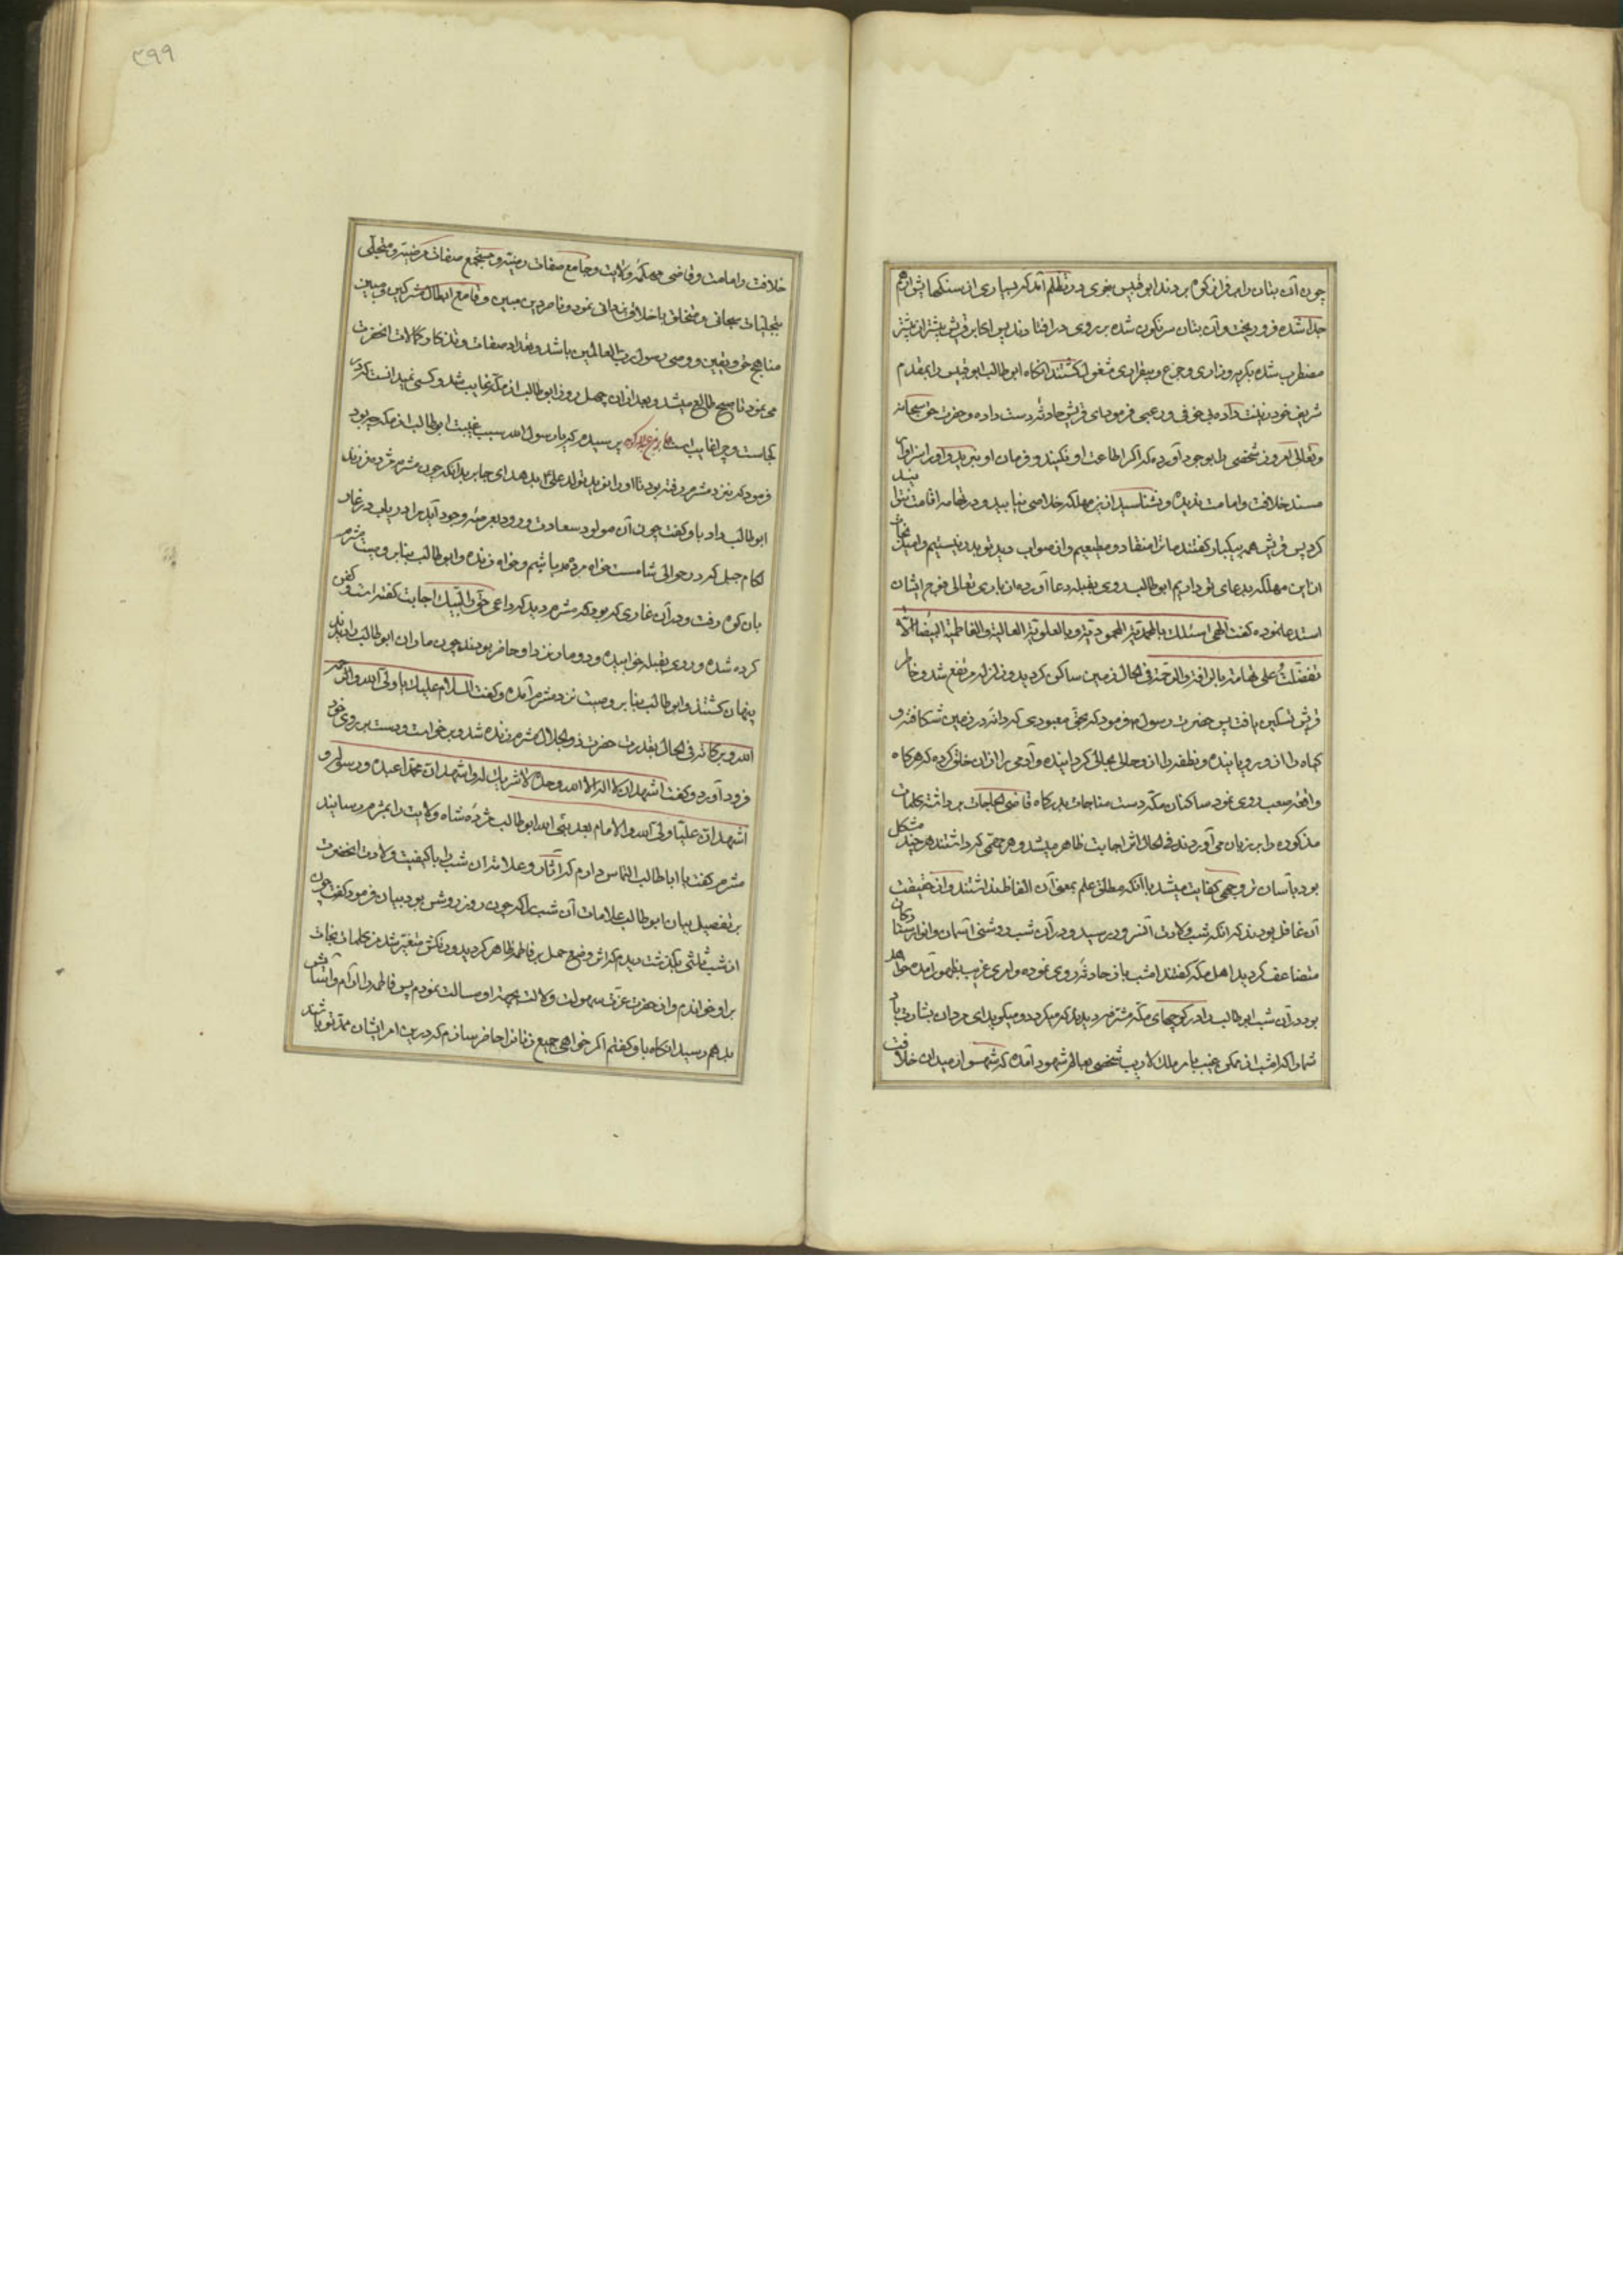 چون آن بتان را بر فراز کوه بردند ابو قبیس بنوعی در تظلم آمد که بسیاری از سنکهایش از هم
جدا شده فرو ریخت و آن بتان سرنکون شده بر روی در افتادند پس اکابر قریش بیشتر از پیشتر
مضطرب شده بکریه و زاری و جزع و بیقراری مشغول کشتند انکاه ابو طالب ابو قبیس را بمقدم
شریف خود زینت داده بی خوفی و رعبی فرمود ای قریش حادثه دست داده و حضرت حق سبحانه
و تعالی امروز شخصی را بوجود آورده که اکر اطاعت او نکنید و فرمان او نبرید و او را سزاوار
مسند خلافت و امامت ندیده و نشناسید ازین مهلکه خلاصی نیابید و در تهامه اقامت نتوانید
کرد پس قریش همه بیکبار کفتند ما ترا منقاد و مطیعیم و از صواب دید تو بدر نیستیم و امید نجات
ازین مهلکه بدعای تو داریم ابو طالب روی بقبله دعا آورده از باری تعالی فرح ایشان
استدعا نموده کفت الهی اسئلک بالمحمدیة المحمودیة و بالعلویة العالیة و الفاطمیة البیضاء الا
تفضلت علی تهامة بالرافة و الرحمة فی الحال زمین ساکن کردید و زلزله مرتفع شد و خاطر
قریش تسکین یافت پس حضرت رسول م فرمود که بحق معبودی که دانه در زمین شکافته و
کیاه را از و برویانیده و نطفه را از حالی بحالی کردانیده و آدمی را از ان خلق کرده که هر کاه
واقعه صعب روی نمود ساکنان مکه دست مناجات بدرکاه قاضی الحاجات برداشته کلمات
مذکوره را بر زبان می آوردند فی الحال اثر اجابت ظاهر میشد و هر مهمی که داشتند هر چند مشکل
بود بآسان تر وجهی کفایت میشد با آنکه مطلق علم بمعنی آن الفاظ نداشتند و از حقیقت
آن غافل بودند که انکه شب ولادت آنسرور رسید و در آن شب روشنی آسمان و انوار ستارکان
متضاعف کردید اهل مکه کفتند امشب باز حادثه روی نموده و امری غریب بظهور آمده خواهد
بود در آن شب ابو طالب را در کوچهای مکه مشرفه دیدند که میکردد و میکوید ای مردمان بشارت باد
شما را که امشب از ممکن غیب بامر ملک لاریب شخصی بعالم شهود آمده که شهسوار میدان خلافت
۳۹۹
خلافت و امامت و قاضی محکمه ولایت و جامع صفات رضیه و مستجمع صفات مرضیه و متجلی
بتجلیات سبحانی و متخلق باخلاق یزدانی نمود و ناصر دین مبین و قامع ابطال مشرکین و مبین
مناهج حق و یقین و وصی رسول رب العالمین باشد و تعداد صفات و تذکار کمالات انحضرت
می نمود تا صبح طالع میشد و بعد از ان چهل روز ابو طالب از مکه غایب شد و کسی نمیدانست که در
کجاست و چرا غایب است جابر بن عبدالله پرسیده که یا رسول الله سبب غیبت ابو طالب از مکه چه بود
فرمود که نزد مثرم رفته بود تا او را نوید تولد علی ع بدهد ای جابر بدانکه چون مثرم مژده فرزند
ابو طالب داد باو کفت چون آن مولود سعادت ورود بعرصه وجود آید مرا دریاب در غار
لکام جبل که در حوالی شامست خواه مرده باشم و خواه زنده و ابو طالب بنا بر وصیت مثرم
بان کوه رفت و در آن غاری که بود که مثرم دید که داعی حق را لبیک اجابت کفته است و کفن
کرده شده و روی بقبله خوابیده و دو مار نزد او حاضر بودند چون ماران ابو طالب را دیدند
پنهان کشتند و ابو طالب بنا بر وصیت نزد مثرم آمده و کفت السلام علیک یا ولی الله و رحمة
الله و برکاته فی الحال بقدرت حضرت ذو الجلال مثرم زنده شد و برخواست و دست بر روی خود
فرود آورد و کفت اشهد ان لا اله الا الله وحده لا شریک له و اشهد ان محمدا عبده و رسوله و
اشهد ان علیا ولی الله و الامام بعد نبی الله ابو طالب مژده شاه ولایت را بمثرم رسانید
مثرم کفت یا ابا طالب التماس دارم که آثار و علامت ان شب را با کیفیت ولادت انحضرت
بر تفصیل بیان ابو طالب علامات آن شب را که چون روز روشن بود بیان فرمود کفت چون
از شب ثلثی بکذشت دیدم که اثر وضع حمل بر فاطمه ظاهر کردید و رنکش متغیر شد من کلمات نجات
بر او خواندم و از حضرت عزت سهولت ولادت بجهة او مسالت نمودم پس فاطمه را آرام و آسایش
بدهم رسید انکاه باو کفتم اکر خواهی جمیع زنانرا حاضر سازم که درین امر ایشان ممد تو باشند